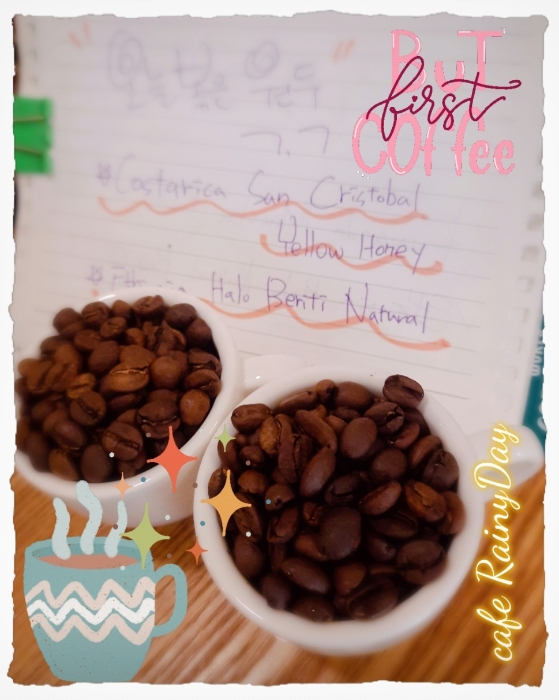 오늘 볶은 원두
7.7
But
first
Coffee
*Costarica San Cristobal
Yellow Honey
Halo Beriti Natural
cafe RainyDay